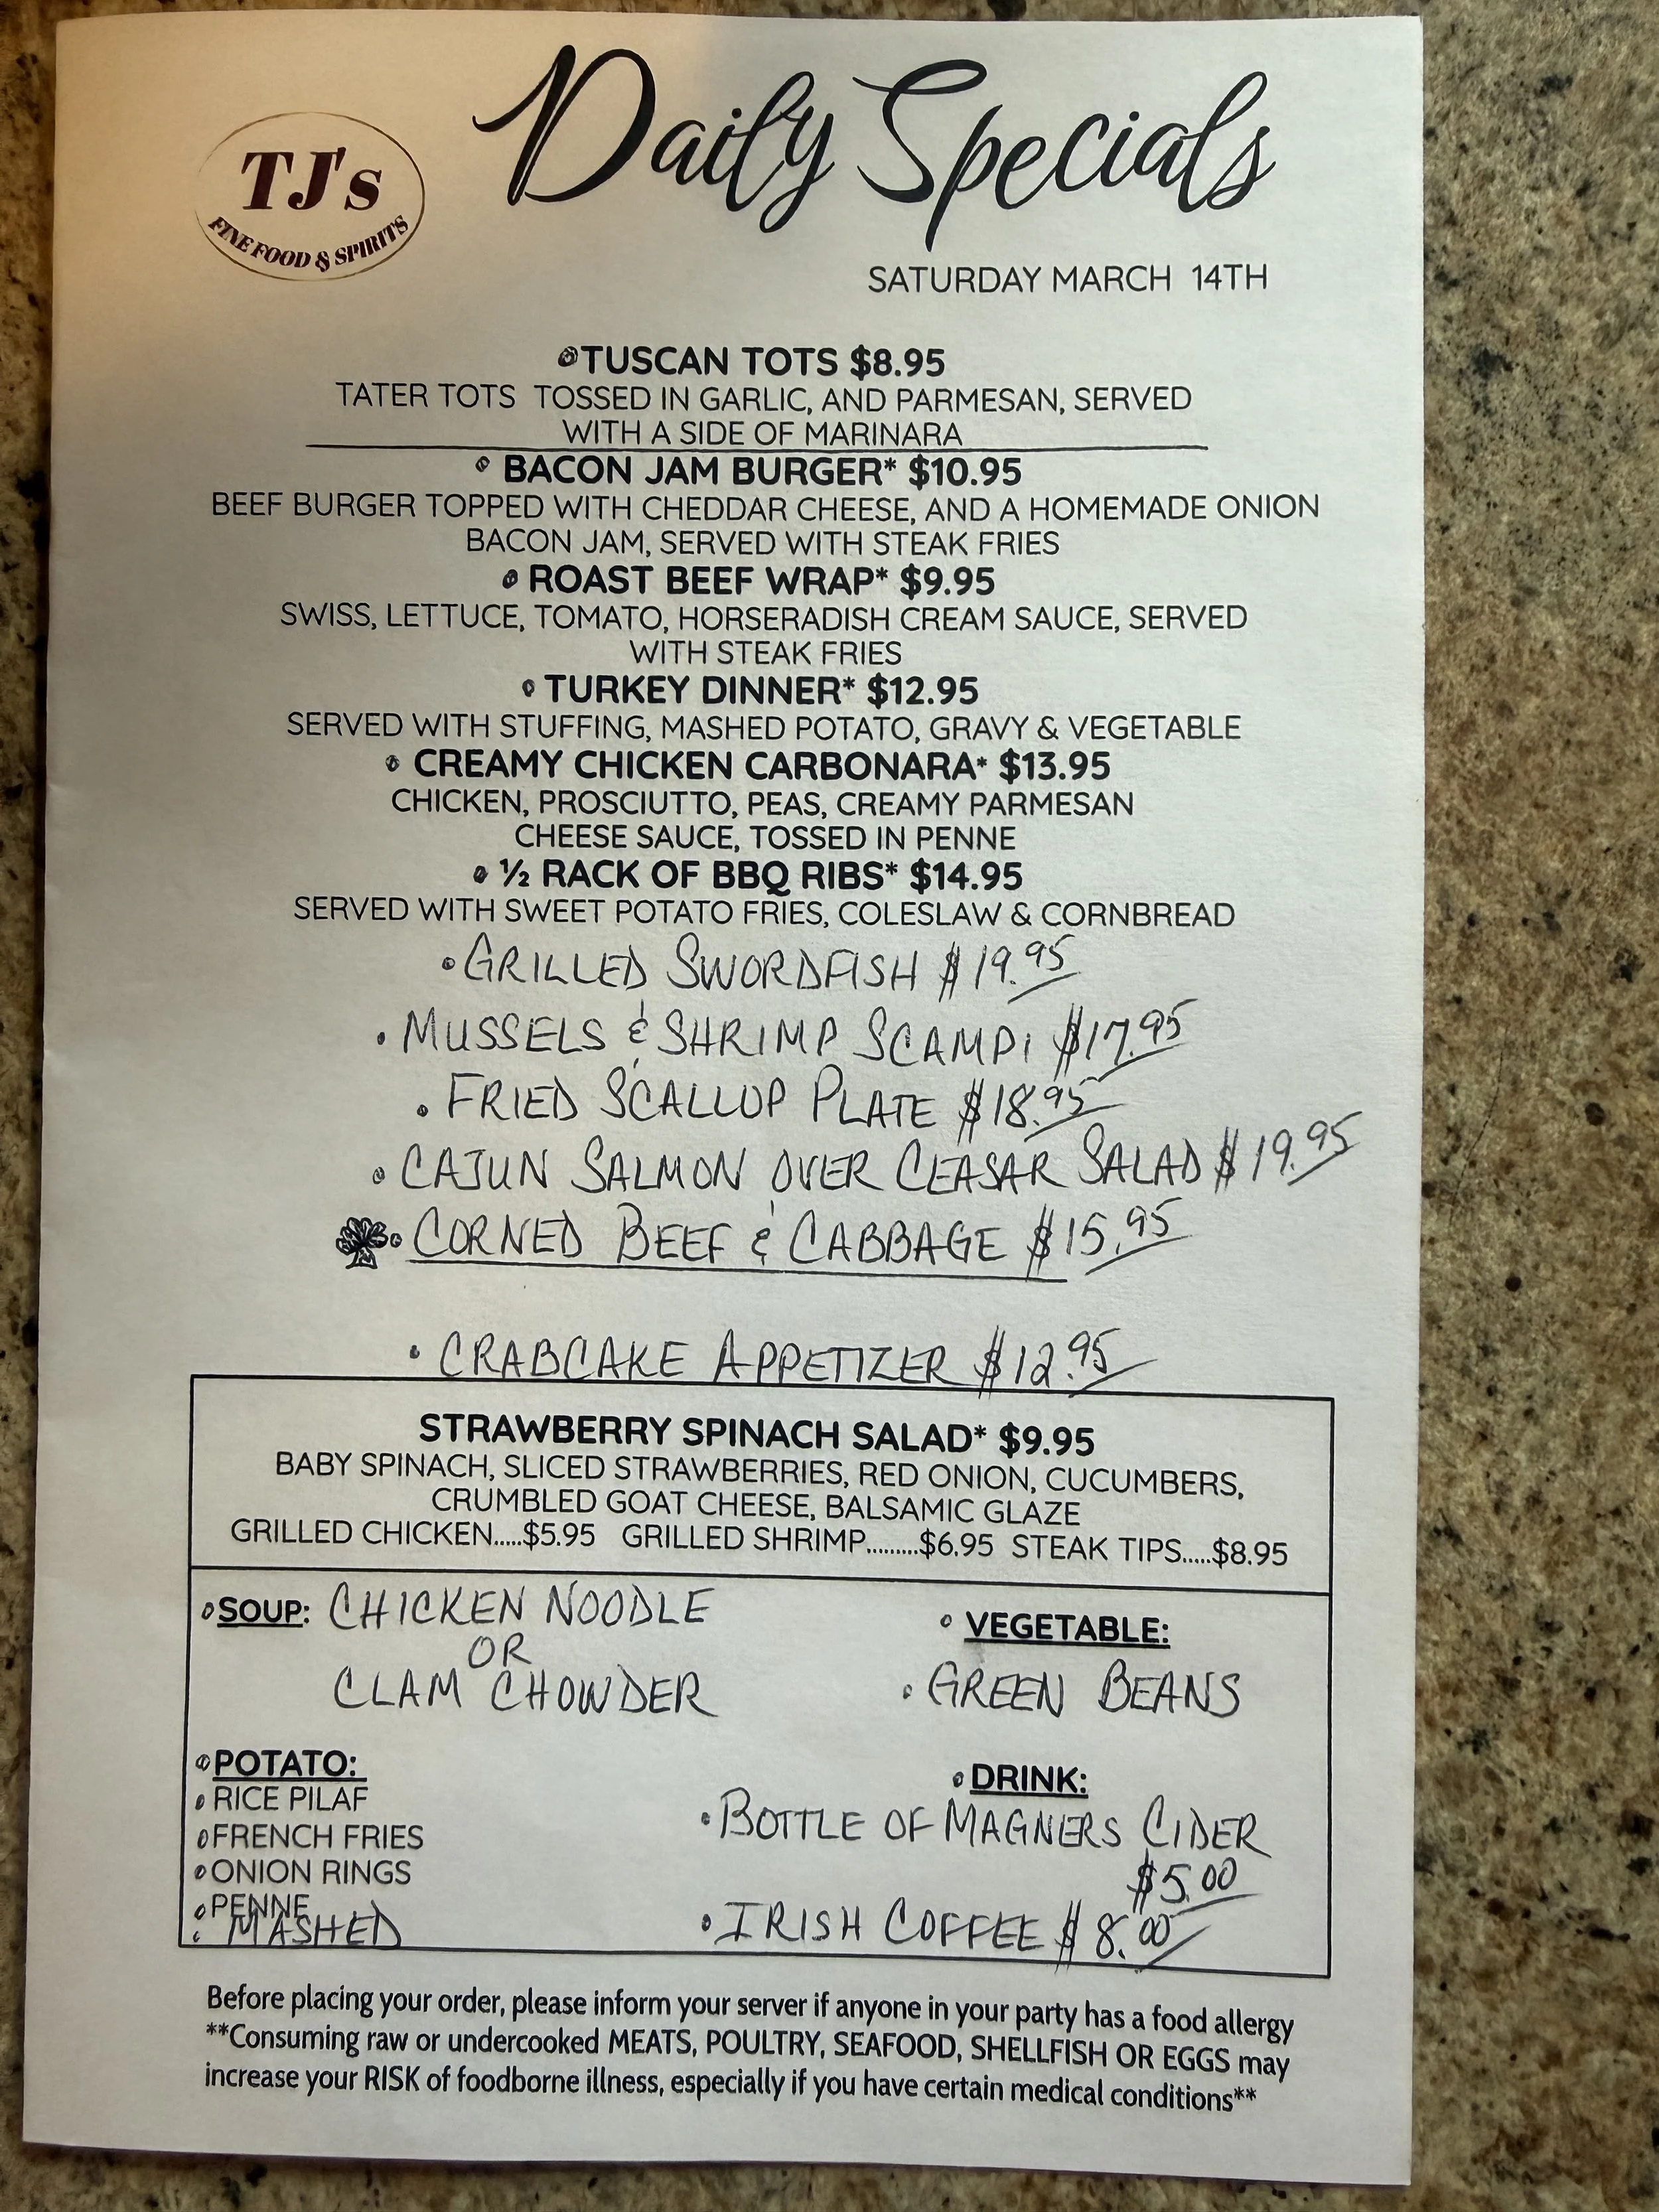 TJ's
FINE FOOD & SPIRITS
Daily Specials
SATURDAY MARCH 14TH
TUSCAN TOTS $8.95
TATER TOTS TOSSED IN GARLIC, AND PARMESAN, SERVED
WITH A SIDE OF MARINARA
BACON JAM BURGER* $10.95
BEEF BURGER TOPPED WITH CHEDDAR CHEESE, AND A HOMEMADE ONION
BACON JAM, SERVED WITH STEAK FRIES
ROAST BEEF WRAP* $9.95
SWISS, LETTUCE, TOMATO, HORSERADISH CREAM SAUCE, SERVED
WITH STEAK FRIES
TURKEY DINNER* $12.95
SERVED WITH STUFFING, MASHED POTATO, GRAVY & VEGETABLE
CREAMY CHICKEN CARBONARA* $13.95
CHICKEN, PROSCIUTTO, PEAS, CREAMY PARMESAN
CHEESE SAUCE, TOSSED IN PENNE
½ RACK OF BBQ RIBS* $14.95
SERVED WITH SWEET POTATO FRIES, COLESLAW & CORNBREAD
• GRILLED SWORDFISH $19.95
• MUSSELS & SHRIMP SCAMPI $17.95
• FRIED SCALLOP PLATE $18.95
• CAJUN SALMON OVER CEASAR SALAD $19.95
• CORNED BEEF & CABBAGE $15.95
• CRABCAKE APPETIZER $12.95
STRAWBERRY SPINACH SALAD* $9.95
BABY SPINACH, SLICED STRAWBERRIES, RED ONION, CUCUMBERS,
CRUMBLED GOAT CHEESE, BALSAMIC GLAZE
GRILLED CHICKEN.....$5.95 GRILLED SHRIMP.........$6.95 STEAK TIPS.....$8.95
SOUP: CHICKEN NOODLE
OR
CLAM CHOWDER
VEGETABLE:
• GREEN BEANS
POTATO:
RICE PILAF
FRENCH FRIES
ONION RINGS
PENNE
MASHED
DRINK:
• BOTTLE OF MAGNERS CIDER
$5.00
• IRISH COFFEE $8.00
Before placing your order, please inform your server if anyone in your party has a food allergy
**Consuming raw or undercooked MEATS, POULTRY, SEAFOOD, SHELLFISH OR EGGS may
increase your RISK of foodborne illness, especially if you have certain medical conditions**